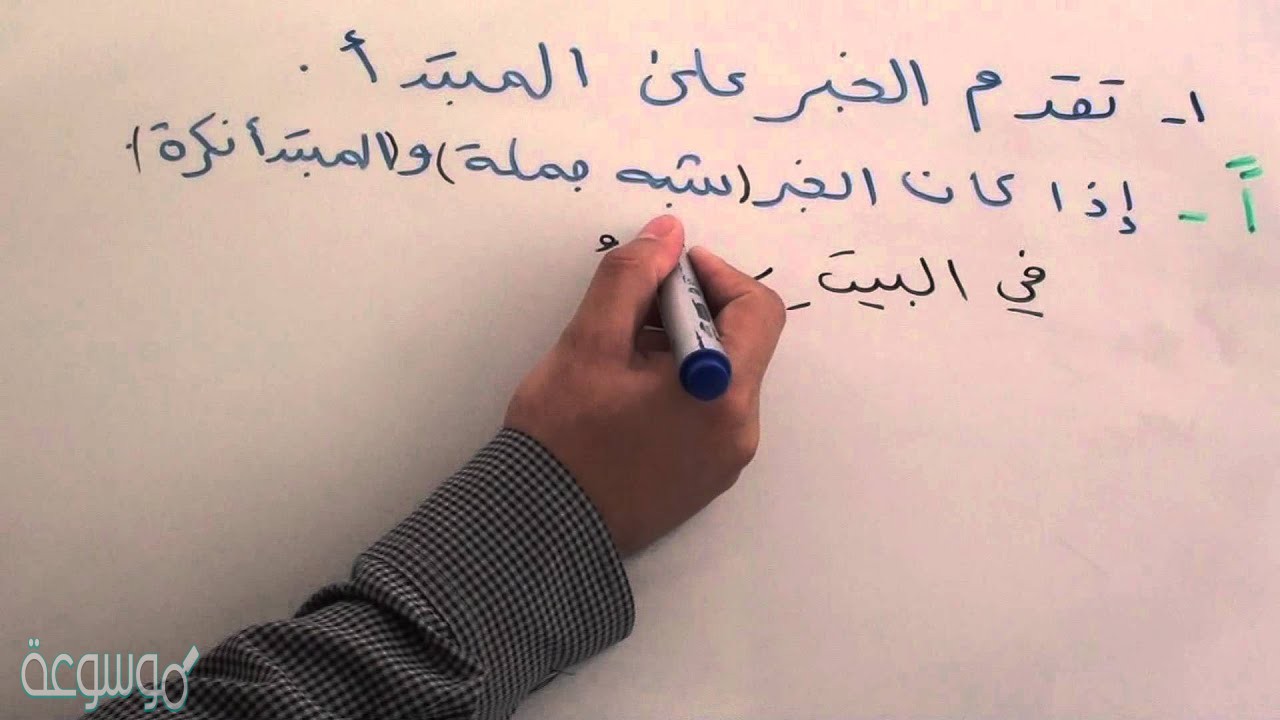 ١- تقدم الخبر على المبتدأ.
أ- إذا كان الخبر (شبه جملة) و(المبتدأ نكرة).
في البيتِ
موسوعة